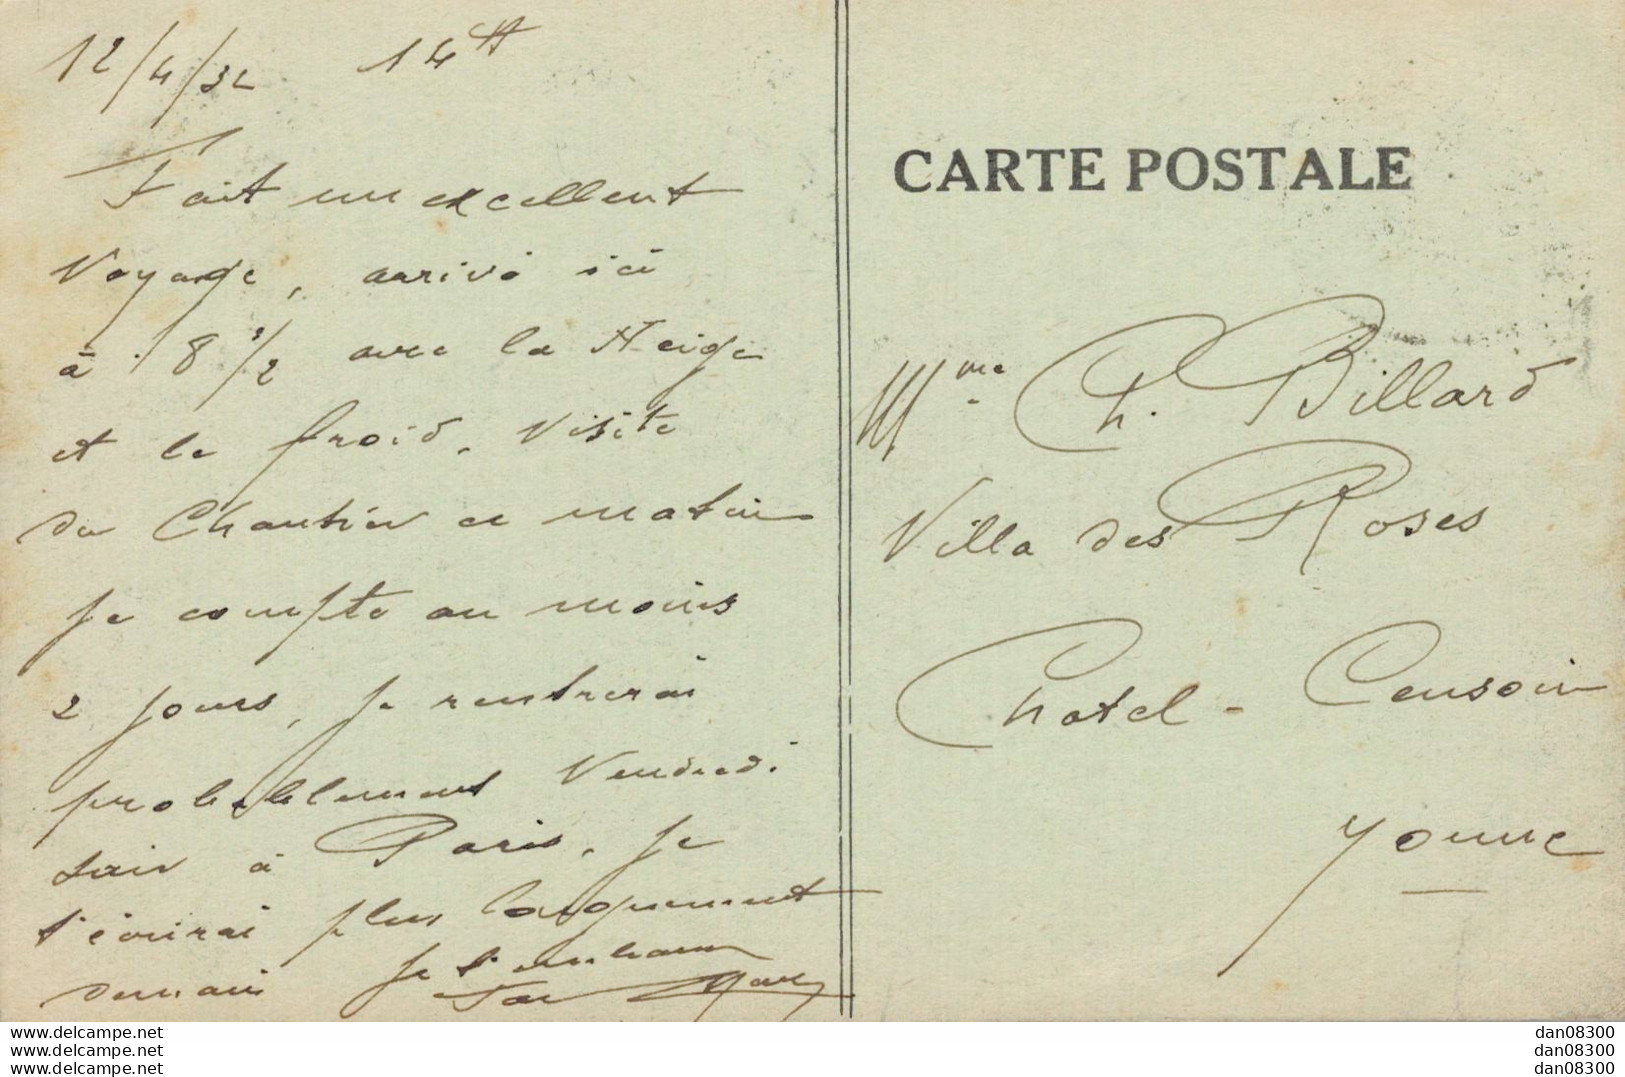 12/4/32 14H
Fait un excellent
Voyage, arrivé ici
à 8 1/2 avec la Neige
et le froid. Visite
du Chantier ce matin
je compte au moins
2 jours, je rentrerai
probablement Vendredi
soir à Paris. Je
t'écrirai plus longuement
demain Je t'embrasse
Ton
CARTE POSTALE
Mme Ch. Billard
Villa des Roses
Chatel - Censoir
Yonne
www.delcampe.net
www.delcampe.net
www.delcampe.net
dan08300
dan08300
dan08300